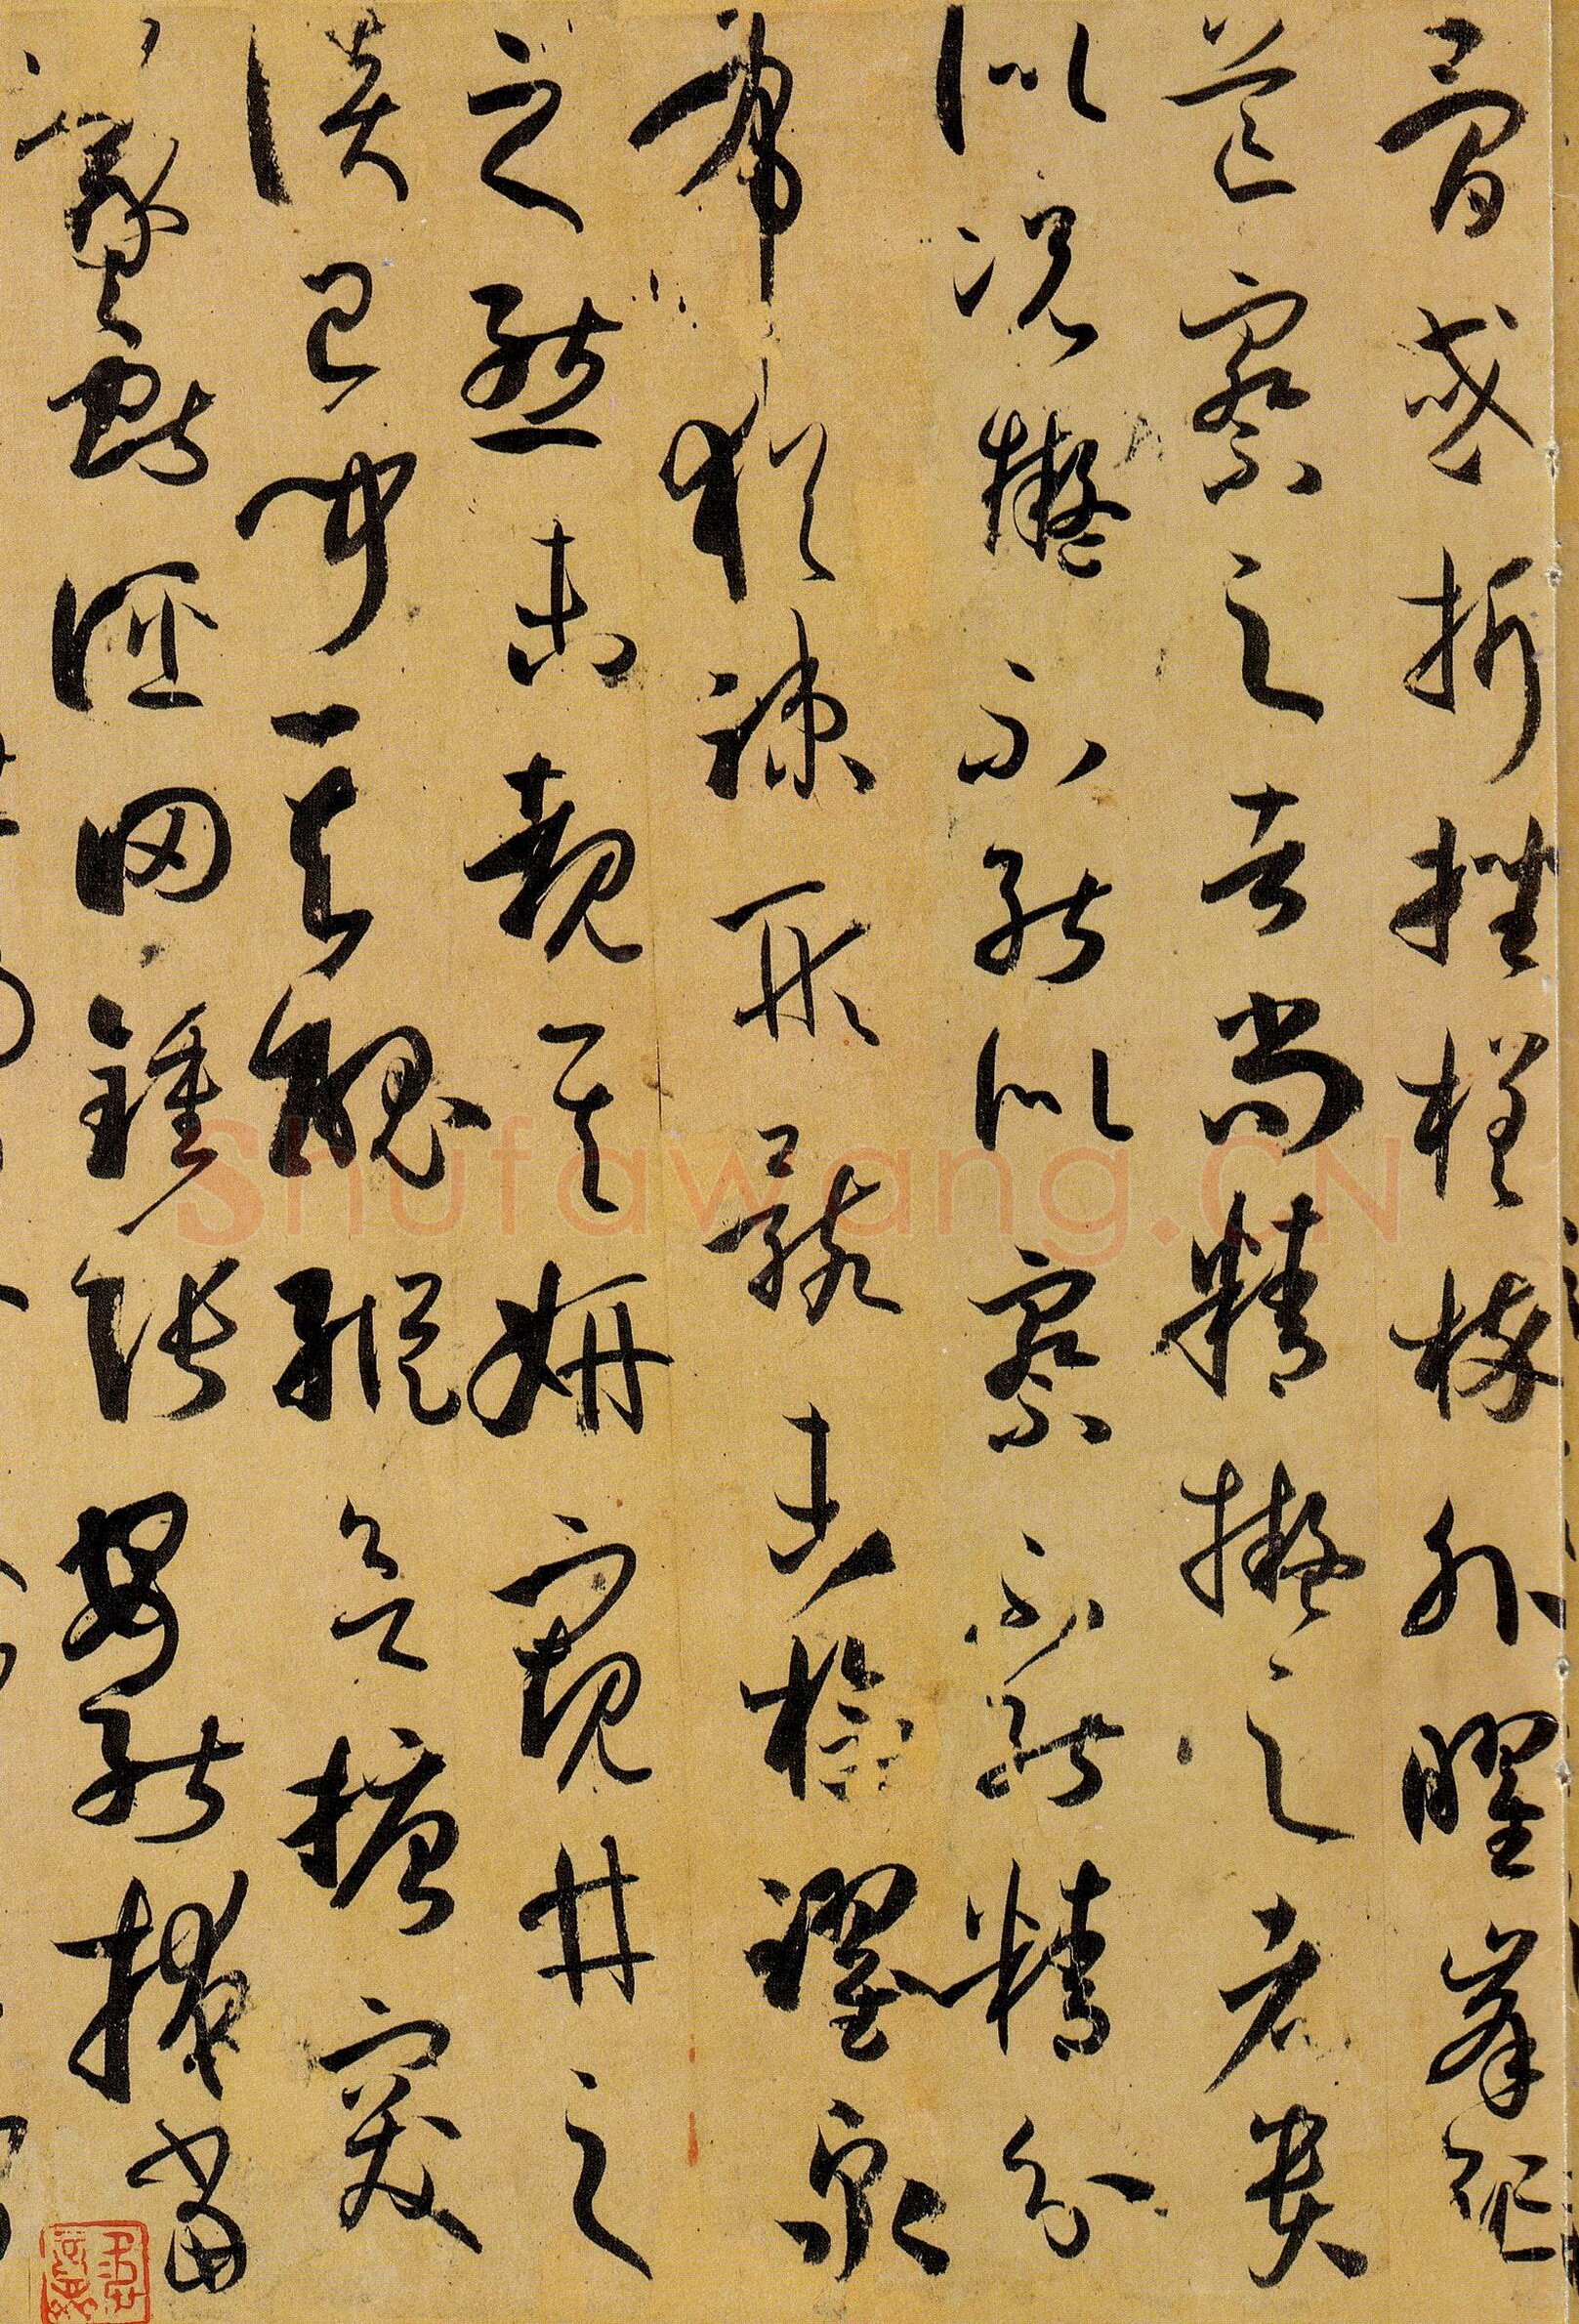 骨或折挫槎枿外曜峯
芒察之者尚精擬之者貴
似況擬不能似察不能精分
布猶疎形骸未檢躍泉
之態未覩其妍窺井之
談已聞其醜縱欲搪突
羲獻誣罔鍾張安能掩當
Shufawang.CN